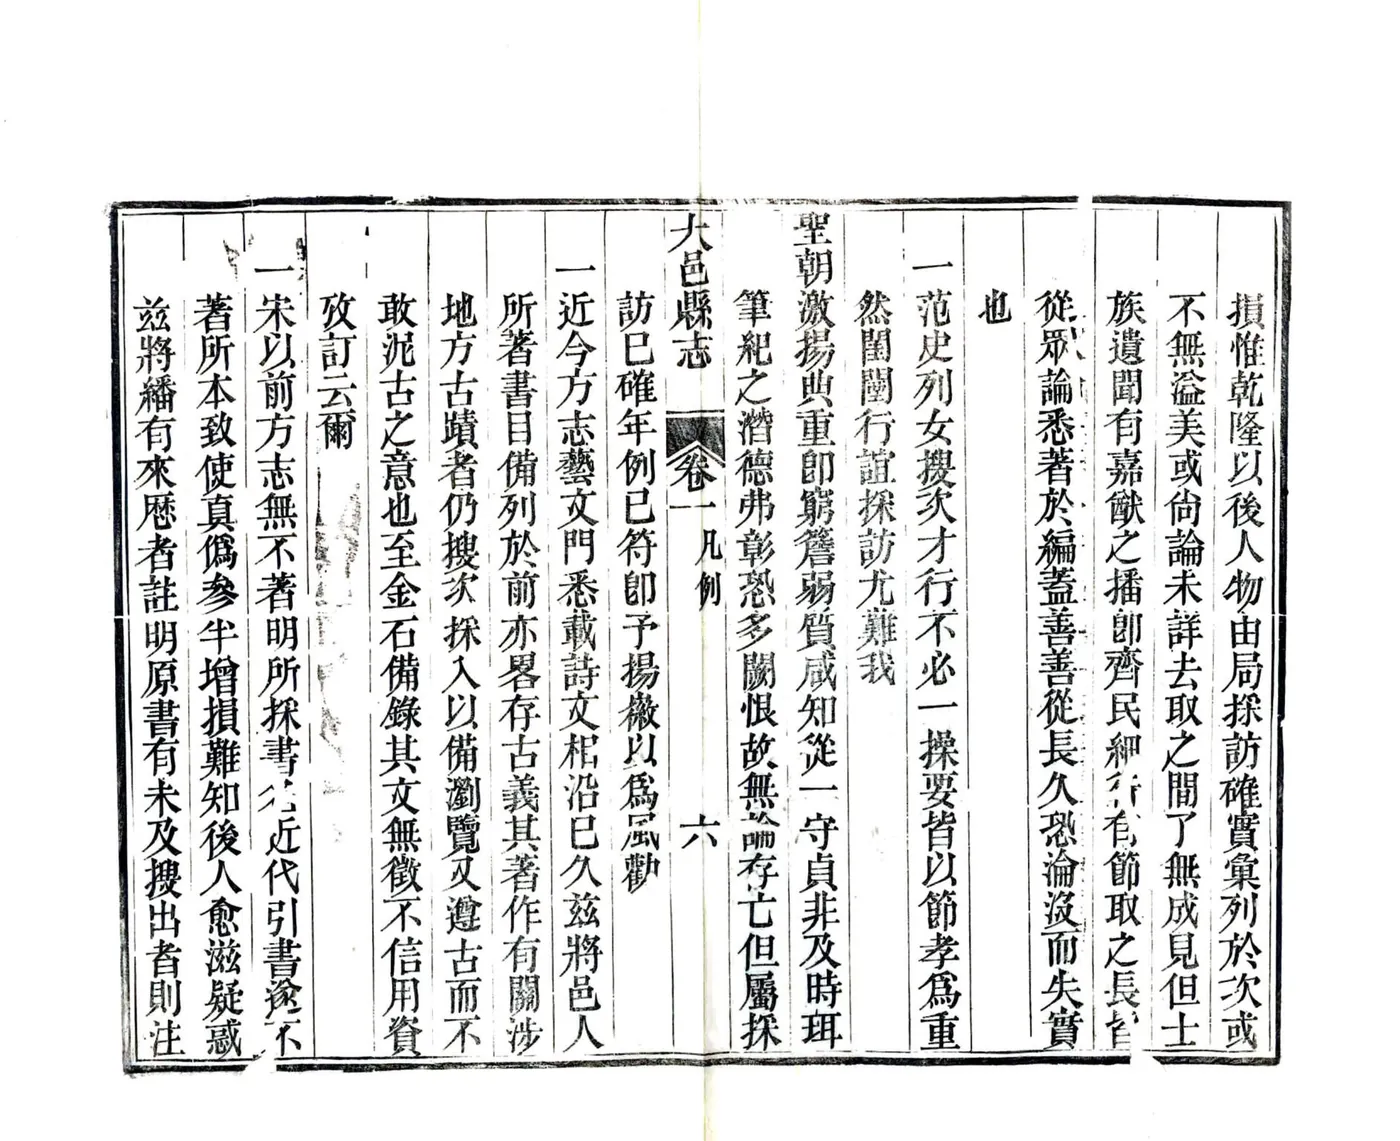 損惟乾隆以後人物由局採訪確實彙列於次或
不無溢美或尙論未詳去取之間了無成見但士
族遺聞有嘉猷之播卽齊民細行有節取之長皆
從眾論悉著於編蓋善善從長久恐淪沒而失實
也
一范史列女搜次才行不必一操要皆以節孝爲重
然閨闥行誼採訪尤難我
聖朝激揚典重卽窮簷弱質咸知從一守貞非及時珥
筆紀之潛德弗彰恐多闕恨故無論存亡但屬採
大邑縣志 卷一 凡例 六
訪已確年例已符卽予揚徽以爲風勸
一近今方志藝文門悉載詩文相沿已久茲將邑人
所著書目備列於前亦畧存古義其著作有關涉
地方古蹟者仍搜次採入以備瀏覽又遵古而不
敢泥古之意也至金石備錄其文無徵不信用資
攷訂云爾
一宋以前方志無不著明所採書名近代引書遂不
著所本致使真僞參半增損難知後人愈滋疑惑
茲將繙有來歷者註明原書有未及搜出者則注